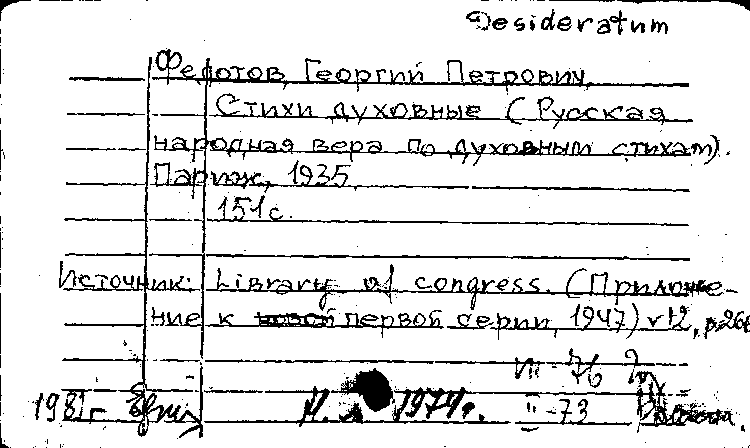 Desideratum
Федотов, Георгий Петрович,
Стихи духовные (Русская
народная вера по духовным стихам).
Париж, 1935,
151 с.
Источник: Library of congress. (Приложе-
ние к первой серии, 1947) v 12, p. 266
III - 76
1981 г. 1974 г. II - 73